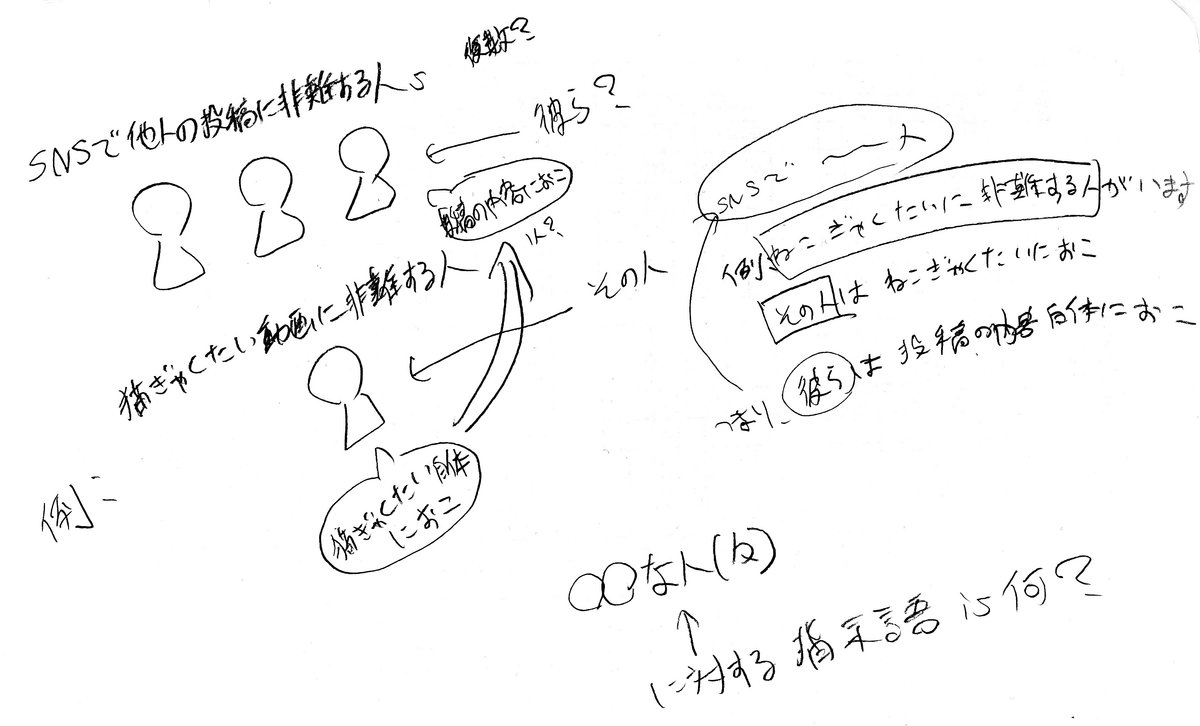 複数?
SNSで他人の投稿に非難する人s
彼ら?
投稿の内容におこ
猫ぎゃくたい動画に非難する人
その人
例:
猫ぎゃくたい自体
におこ
SNSで 〜 人
例、ねこぎゃくたいに非難する人がいます
その人は ねこぎゃくたいにおこ
つまり、彼らは 投稿の内容自体におこ
○○な人(仮)
に対する指示語is何?